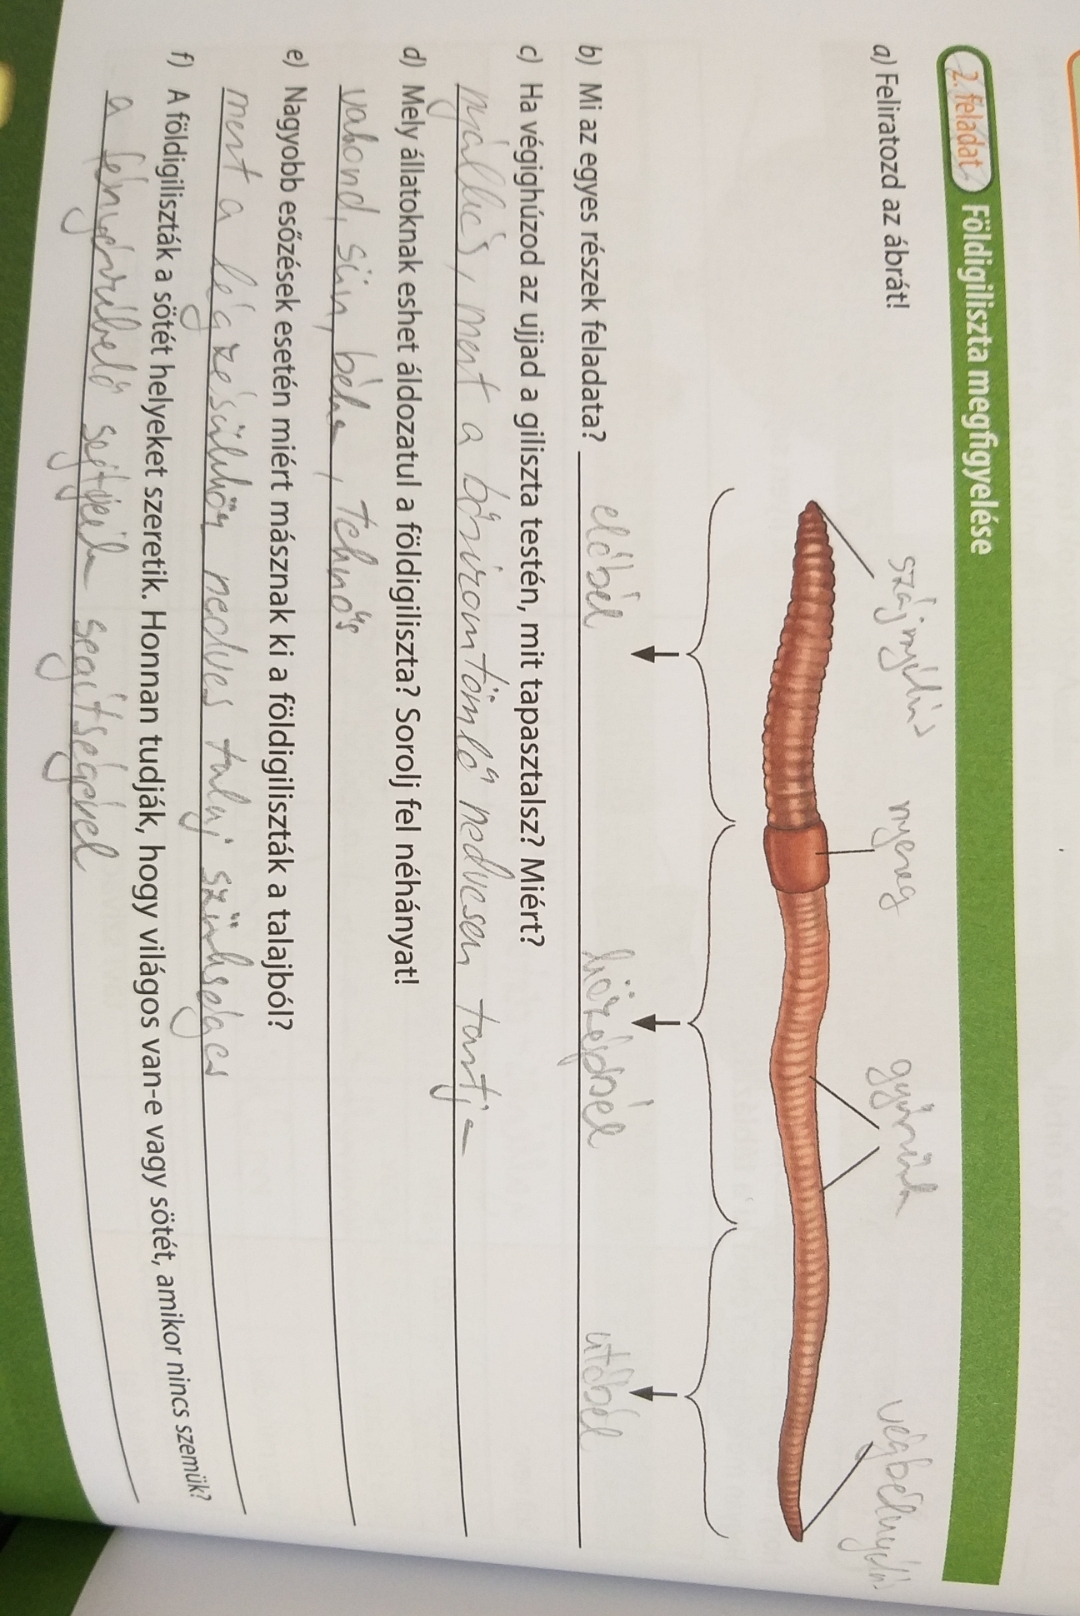 2. feladat Földigiliszta megfigyelése
a) Feliratozd az ábrát!
szájnyílás nyereg gyűrűk végbélnyílás
előbél középbél utóbél
b) Mi az egyes részek feladata?
c) Ha végighúzod az ujjad a giliszta testén, mit tapasztalsz? Miért?
nyálkás, mert a bőrizomtömlő nedvesen tartja
d) Mely állatoknak eshet áldozatul a földigiliszta? Sorolj fel néhányat!
vakond, sün, béka,
e) Nagyobb esőzések esetén miért másznak ki a földigiliszták a talajból?
mert a légzésükhöz nedves talaj szükséges
f) A földigiliszták a sötét helyeket szeretik. Honnan tudják, hogy világos van-e vagy sötét, amikor nincs szemük?
a fényérzékelő sejtjeik segítségével